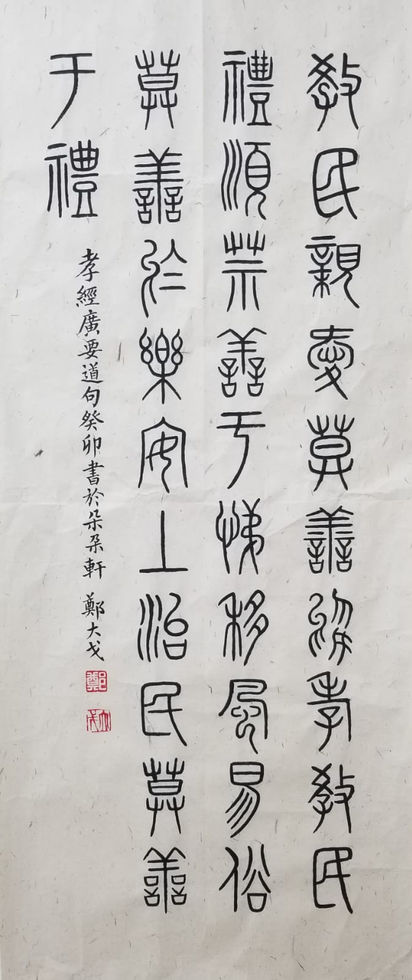 教民親愛莫善於孝教民
禮順莫善于悌移風易俗
莫善於樂安上治民莫善
于禮
孝經廣要道句癸卯書於朵朵軒 鄭大戈